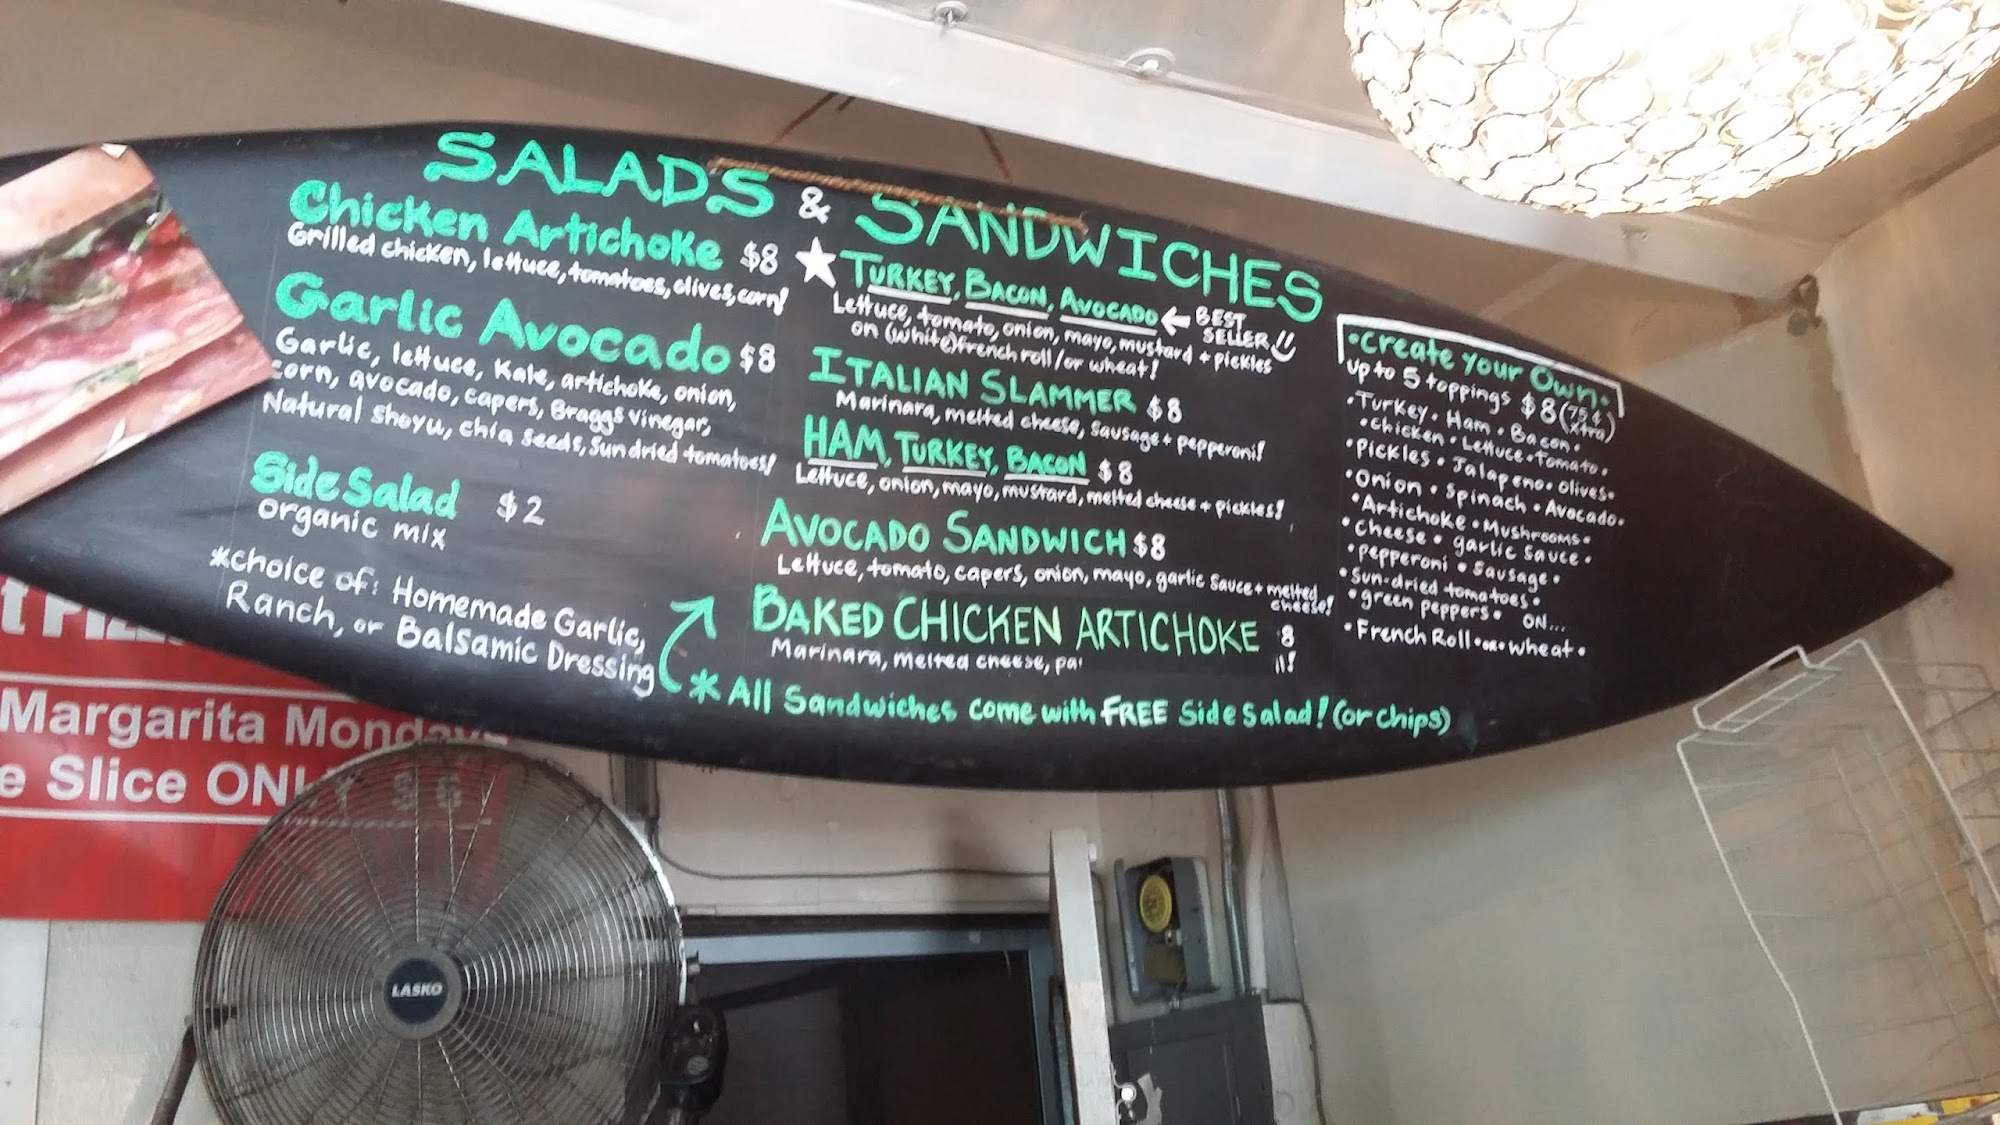 SALADS & SANDWICHES
Chicken Artichoke $8
Grilled chicken, lettuce, tomatoes, olives, corn!
Garlic Avocado $8
Garlic, lettuce, Kale, artichoke, onion,
corn, avocado, capers, Braggs Vinegar,
Natural shoyu, chia seeds, Sundried tomatoes!
Side Salad $2
organic mix
*choice of: Homemade Garlic,
Ranch, or Balsamic Dressing
TURKEY, BACON, AVOCADO ← BEST
SELLER
Lettuce, tomato, onion, mayo, mustard + pickles
on (white) french roll/or wheat!
ITALIAN SLAMMER $8
Marinara, melted cheese, sausage + pepperoni!
HAM, TURKEY, BACON $8
Lettuce, onion, mayo, mustard, melted cheese + pickles!
AVOCADO SANDWICH $8
Lettuce, tomato, capers, onion, mayo, garlic sauce + melted
cheese!
BAKED CHICKEN ARTICHOKE 8
Marinara, melted cheese,
* All Sandwiches come with FREE Side Salad! (or chips)
•Create your Own•
up to 5 toppings $8 (75¢
xtra)
•Turkey•Ham•Bacon•
•chicken•Lettuce•Tomato•
•Pickles•Jalapeno•olives•
•Onion•Spinach•Avocado•
•Artichoke•Mushrooms•
•cheese•garlic sauce•
•pepperoni•sausage•
•sun-dried tomatoes•
•green peppers• ON...
•French Roll•or•wheat•
Margarita Mondays
Slice ONLY $6
LASKO